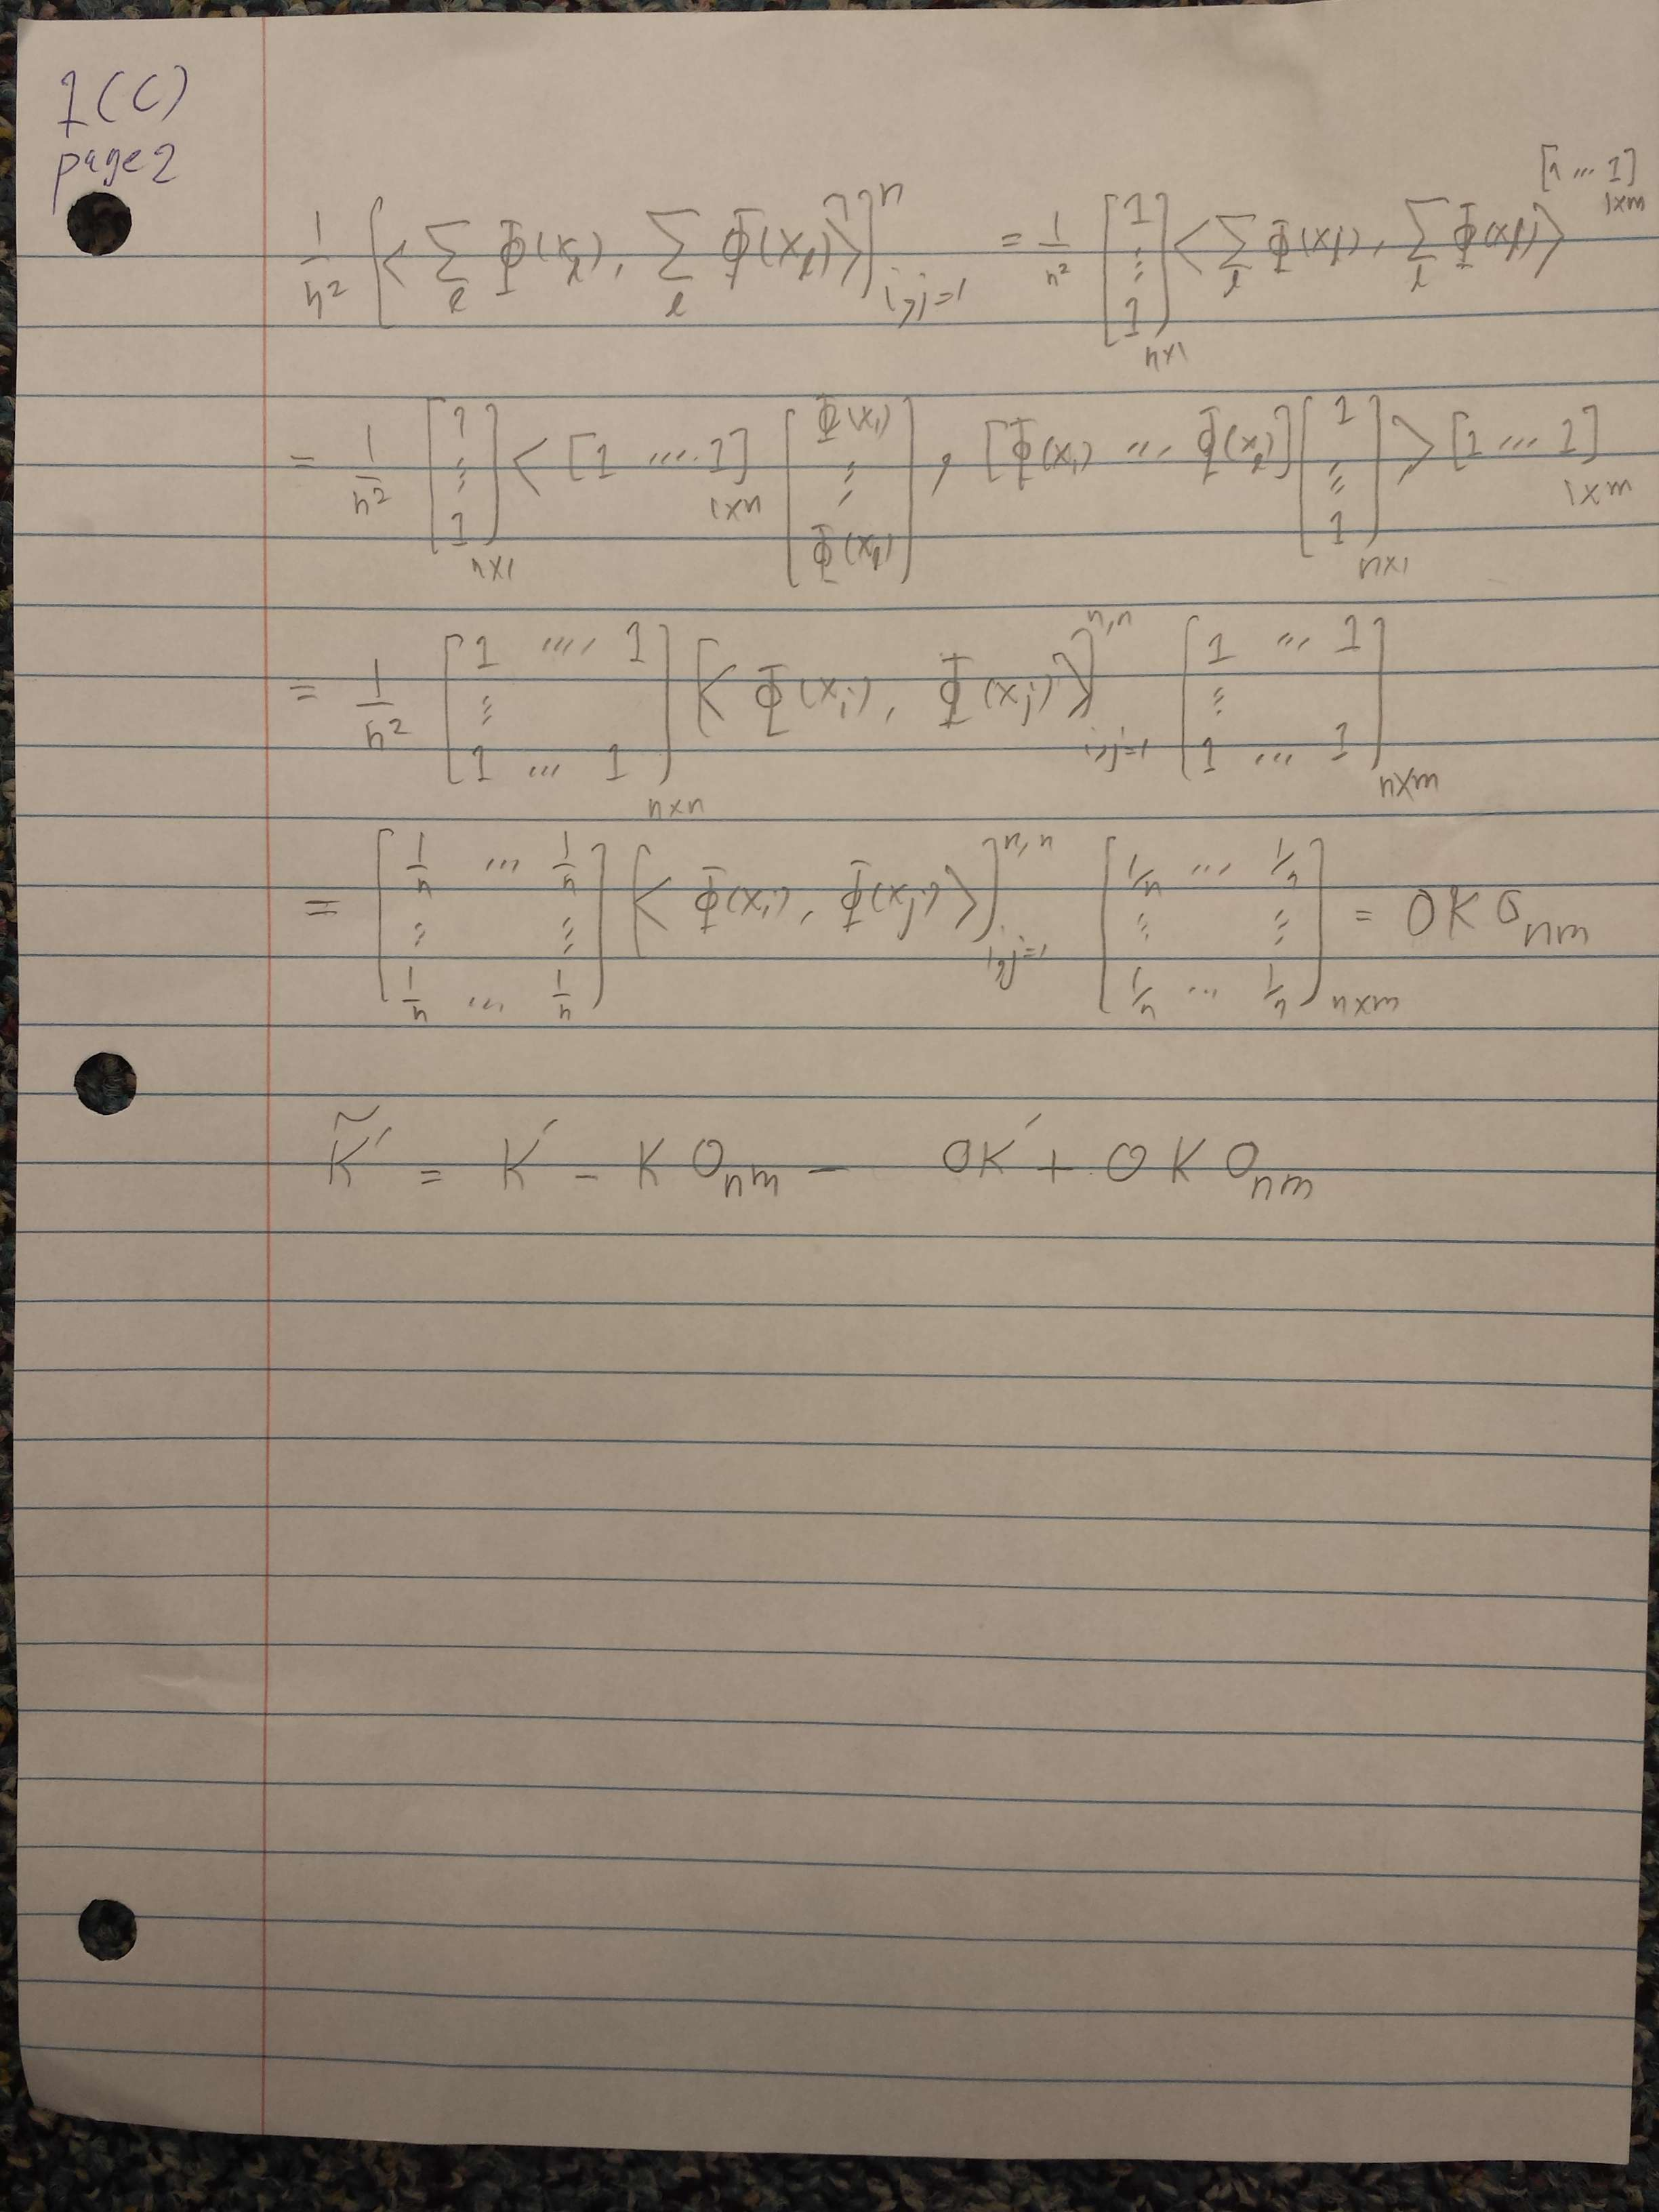 1(C)
page 2
1/n² [<∑_ℓ Φ(x_ℓ), ∑_ℓ Φ(x_ℓ)>]^n_{i,j=1} = 1/n² [1 ⋮ 1]_{n×1} <∑_ℓ Φ(x_ℓ), ∑_ℓ Φ(x_ℓ)> [1 ... 1]_{1×m}
= 1/n² [1 ⋮ 1]_{n×1} < [1 .... 1]_{1×n} [Φ(x₁) ⋮ Φ(x_ℓ)], [Φ(x₁) ... Φ(x_ℓ)] [1 ⋮ 1]_{n×1} > [1 ... 1]_{1×m}
= 1/n² [1 .... 1 ⋮ 1 ... 1]_{n×n} [< Φ(x_i), Φ(x_j) >]^{n,n}_{i,j=1} [1 ... 1 ⋮ 1 ... 1]_{n×m}
= [1/n ... 1/n ⋮ ⋮ 1/n ... 1/n] [< Φ(x_i), Φ(x_j) >]^{n,n}_{i,j=1} [1/n ... 1/n ⋮ ⋮ 1/n ... 1/n]_{n×m} = O K O_{nm}
K̃′ = K′ - K O_{nm} - O K′ + O K O_{nm}